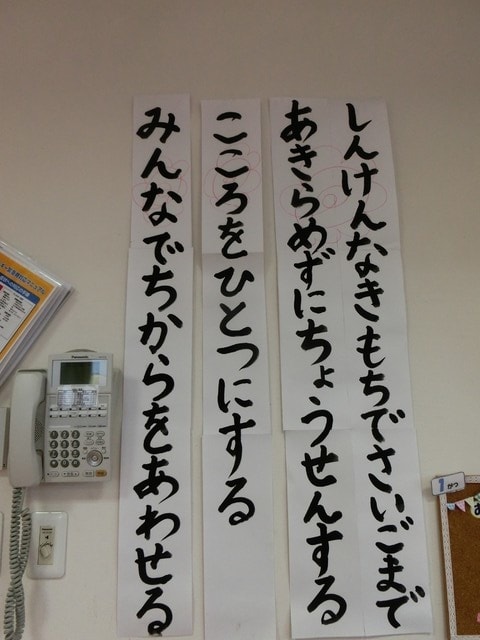 しんけんなきもちでさいごまで
あきらめずにちょうせんする
こころをひとつにする
みんなでちからをあわせる
Panasonic
1がつ